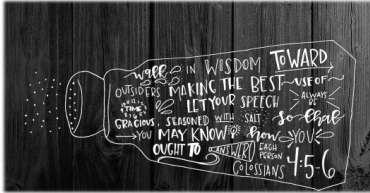 walk IN WISDOM TOWARD
OUTSIDERS MAKING THE BEST USE OF
TIME LET YOUR SPEECH ALWAYS BE
GRACIOUS, SEASONED WITH SALT: so that
YOU MAY KNOW how YOU
OUGHT TO ANSWER EACH PERSON
COLOSSIANS 4:5-6